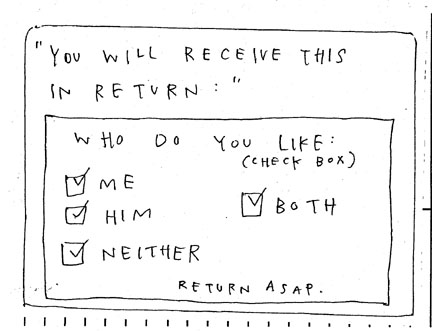 "YOU WILL RECEIVE THIS
IN RETURN:"
WHO DO YOU LIKE:
(CHECK BOX)
ME
HIM
BOTH
NEITHER
RETURN ASAP.